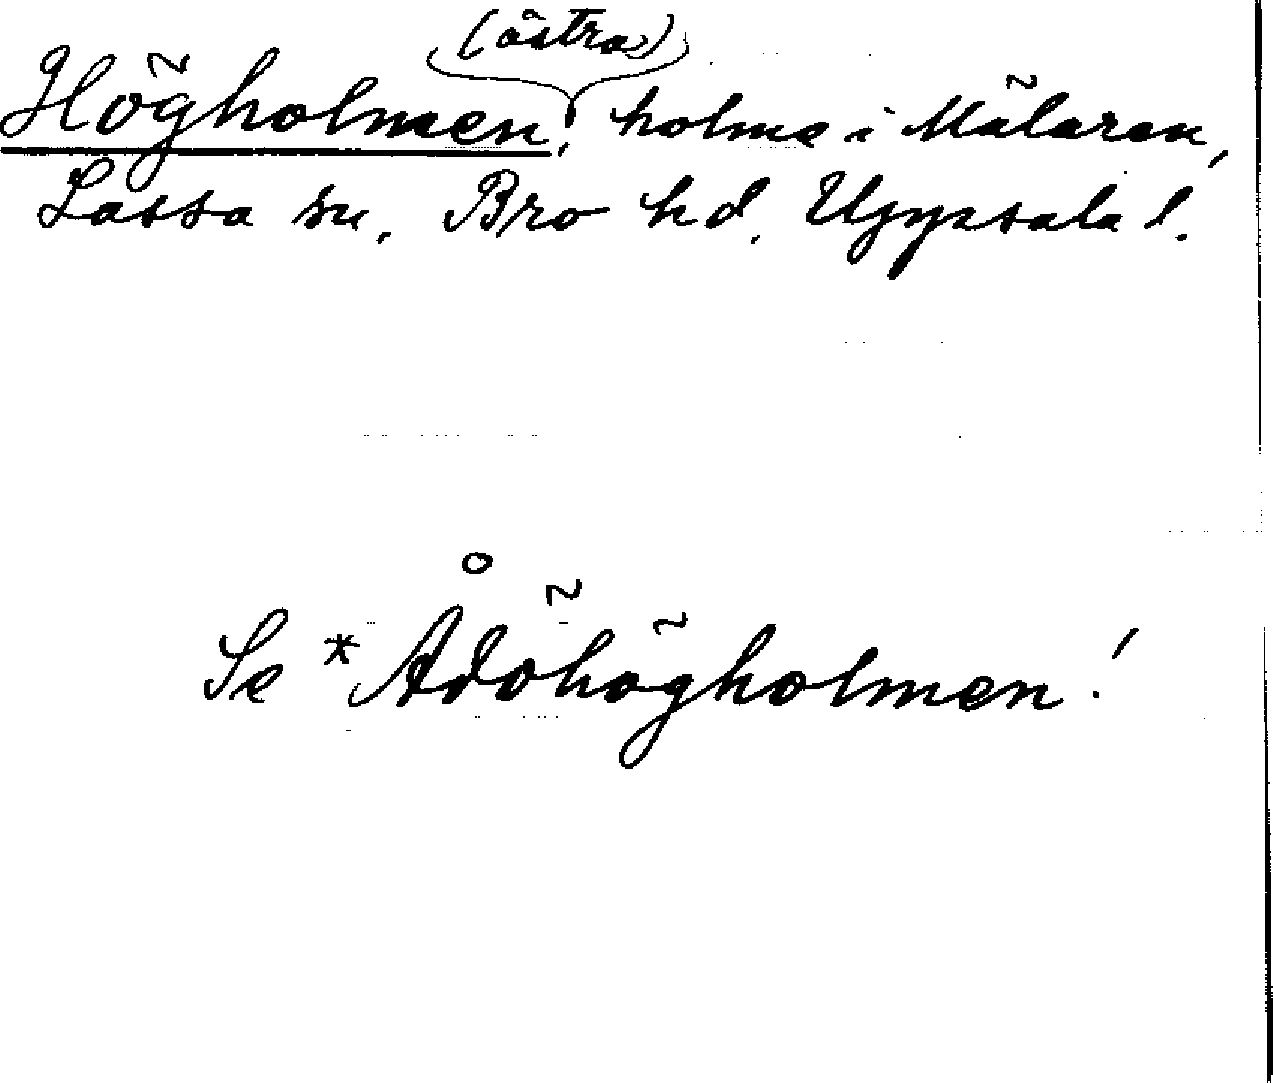 (östra)
Högholmen, holme i Mälaren,
Låssa sn, Bro hd, Uppsala l.
Se *Ådöhögholmen!